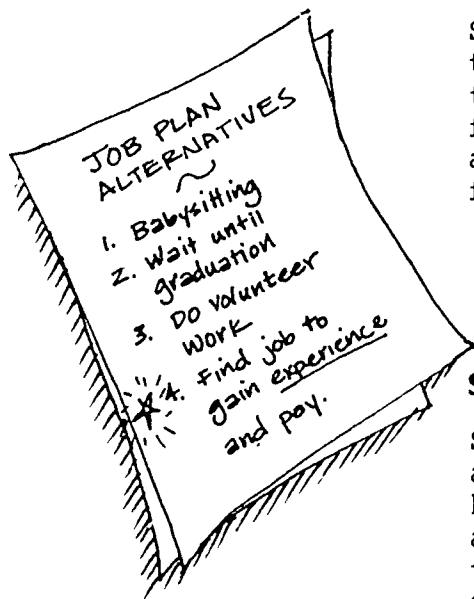 JOB PLAN
ALTERNATIVES
1. Babysitting
2. Wait until
graduation
3. Do volunteer
work
4. Find job to
gain experience
and pay.